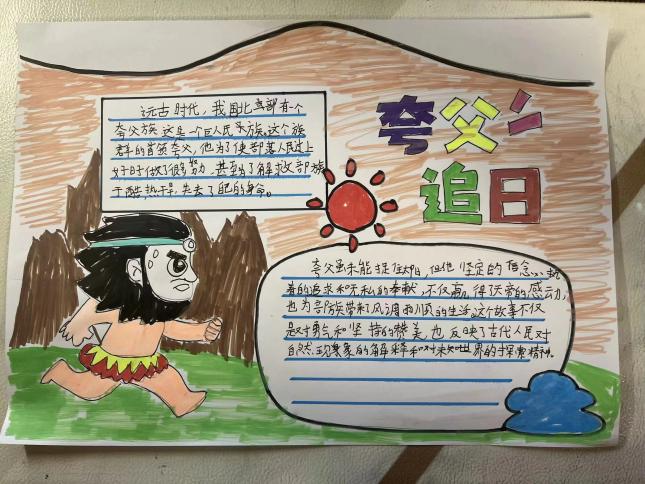 夸父
追日
远古时代，我国北部有一个
夸父族，这是一个巨人民族，这个族
群的首领夸父，他为了使部落人民过上
好日时做了很多努力，甚至为了解救部族
于酷热干旱，失去了自己的身命。
夸父虽未能捉住太阳，但他坚定的信念、执
着的追求和无私的奉献，不仅赢得了天帝的感动，
也为部族带来了风调雨顺的生活。这个故事不仅
是对勇气和坚持的赞美，也反映了古代人民对
自然现象的解释和对未知世界的探索精神。